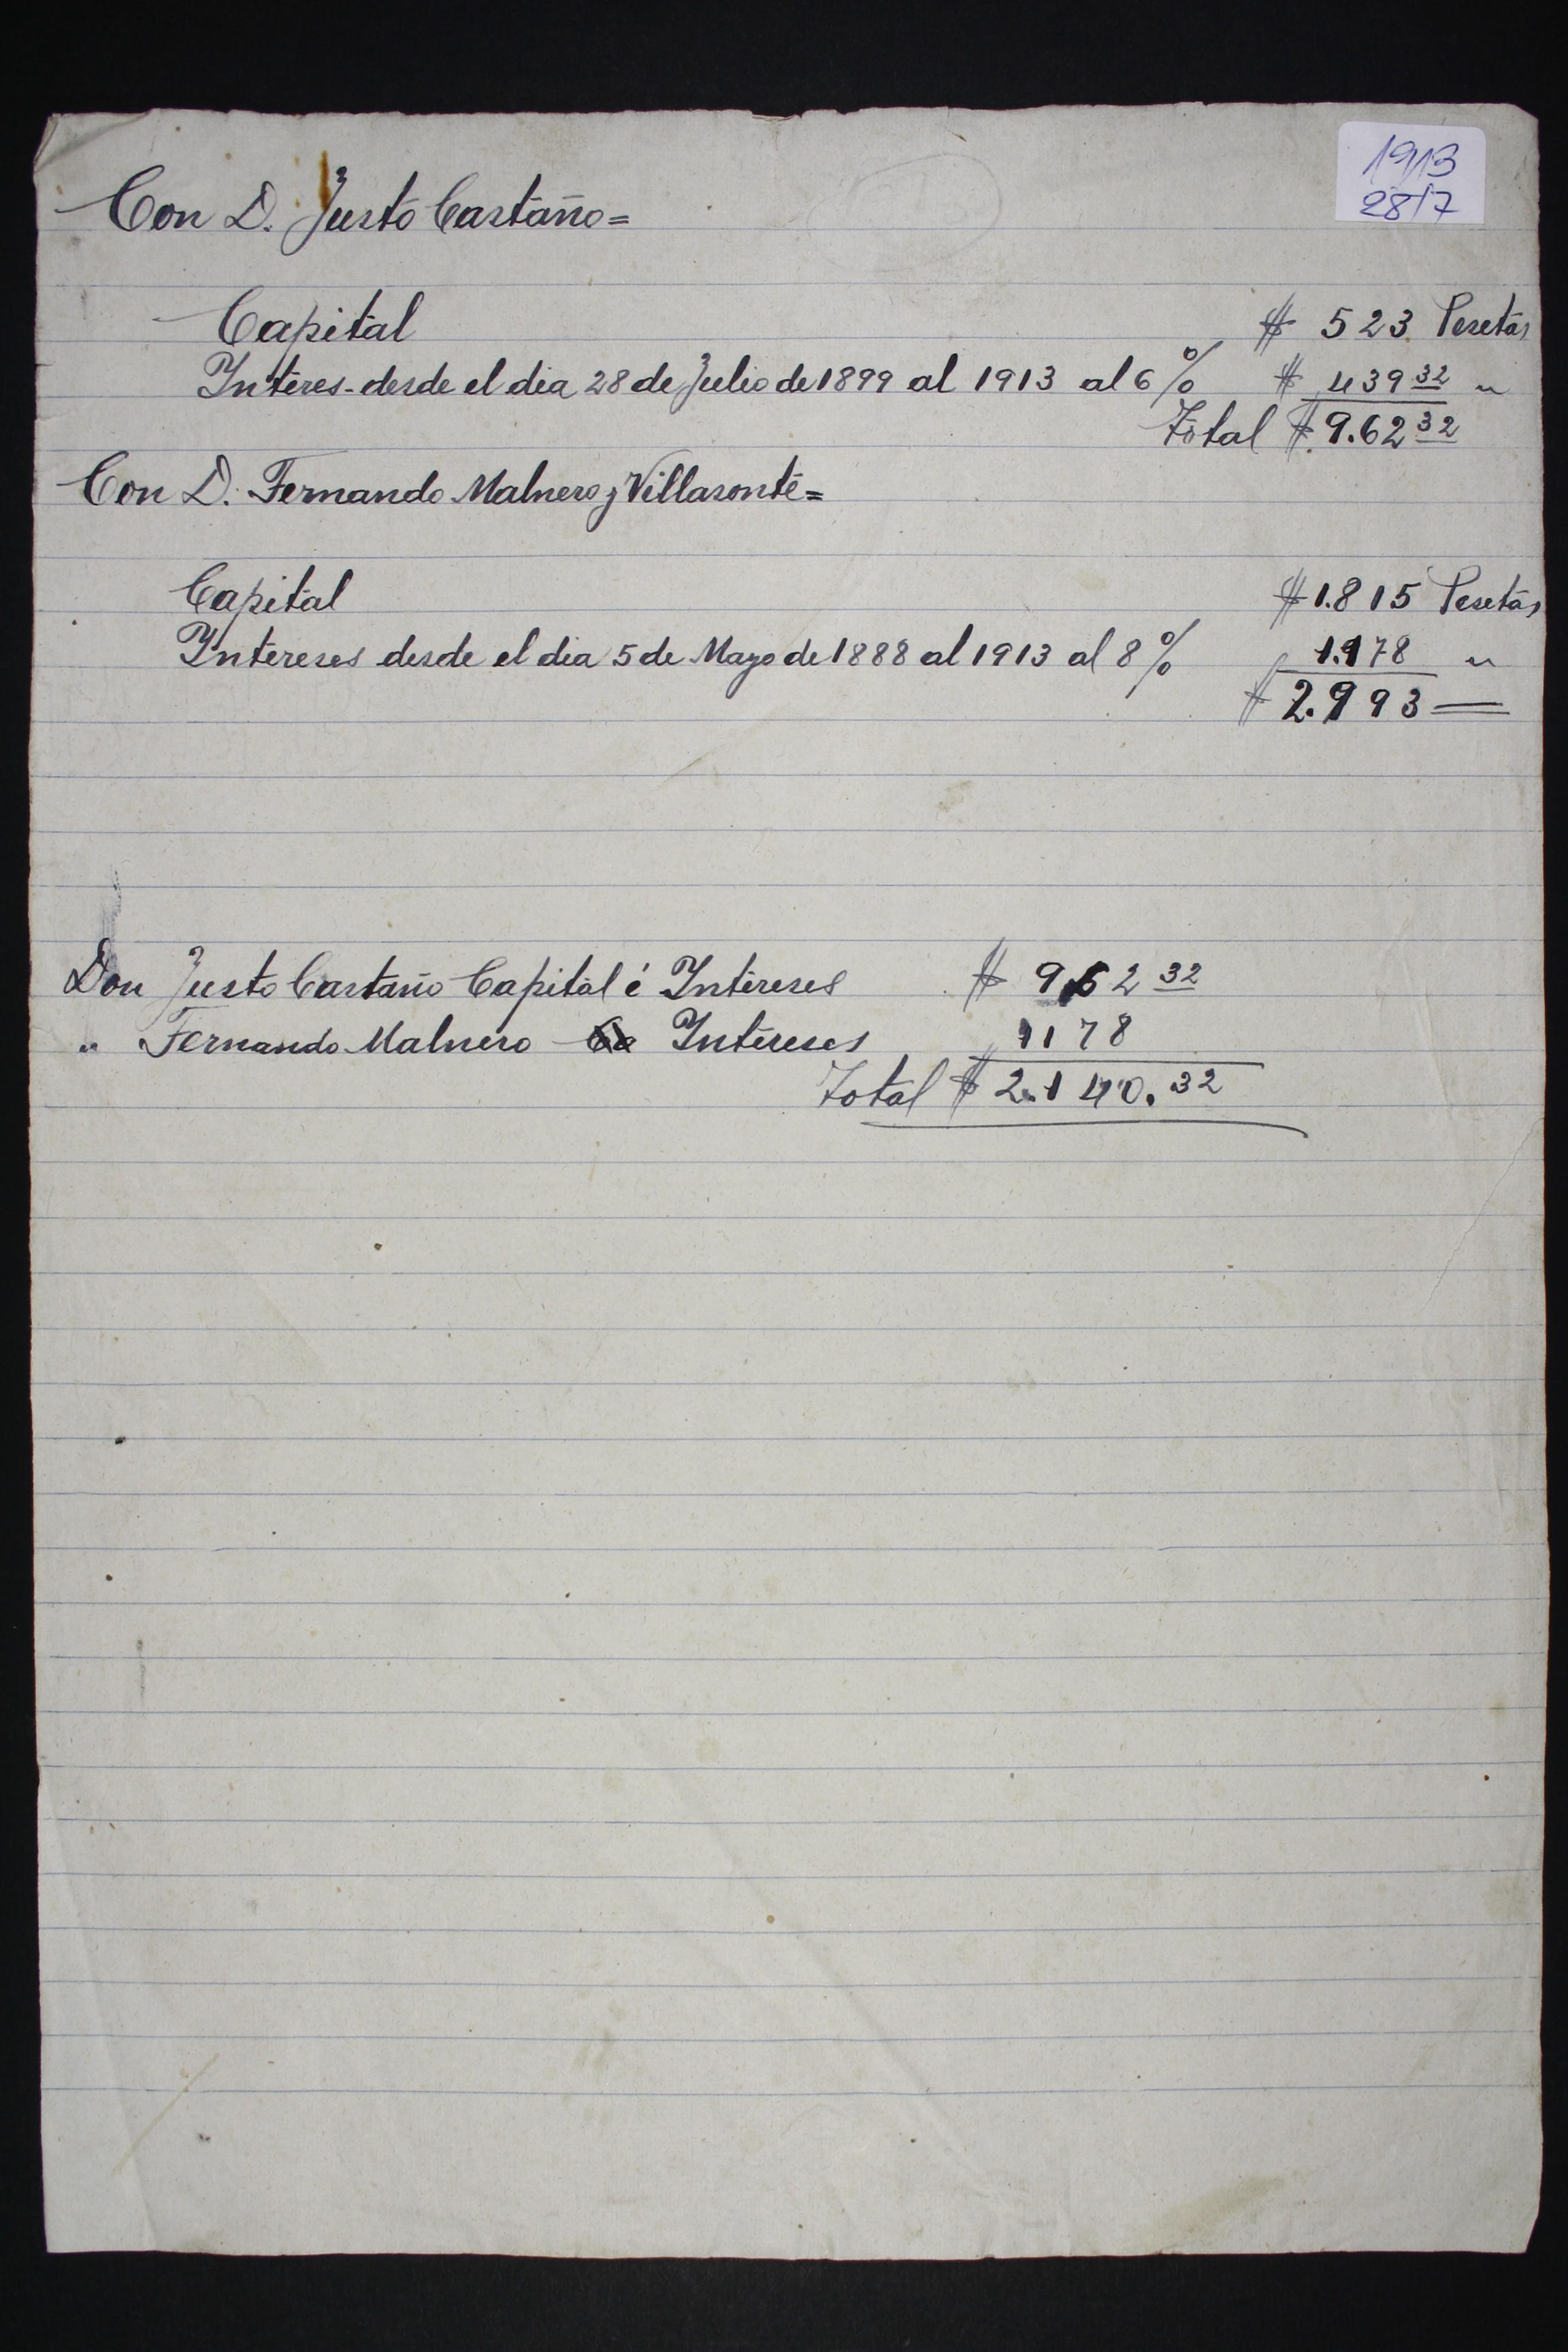 1913
28/7
Con D. Justo Castaño=
Capital $ 523 Pesetas
Interes- desde el dia 28 de Julio de 1899 al 1913 al 6% $ 439 32 "
Total $ 9.62 32
Con D. Fernando Malnero y Villasonte=
Capital $ 1.815 Pesetas
Intereses desde el dia 5 de Mayo de 1888 al 1913 al 8% 1.178 "
$ 2.993 —
Don Justo Castaño Capital é Intereses $ 962 32
" Fernando Malnero Intereses 1178
Total $ 2.140.32